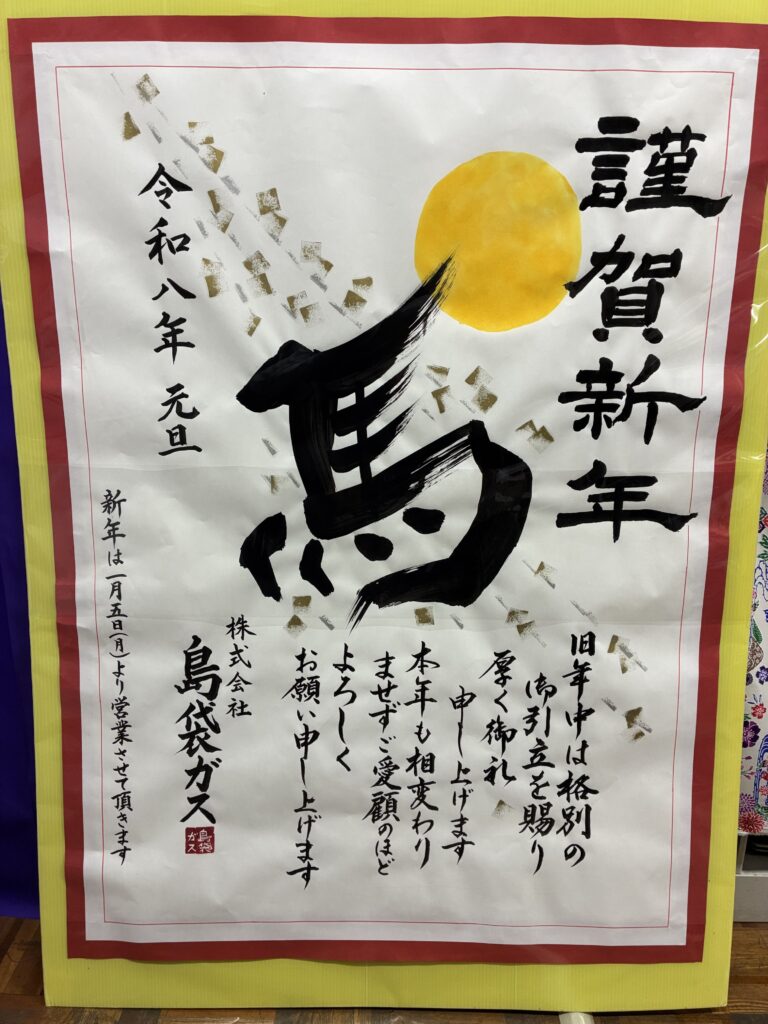 謹賀新年
馬
旧年中は格別の
御引立を賜り
厚く御礼
申し上げます
本年も相変わり
ませずご愛顧のほど
よろしく
お願い申し上げます
令和八年 元旦
株式会社
島袋ガス
島袋
ガス
新年は一月五日(月)より営業させて頂きます